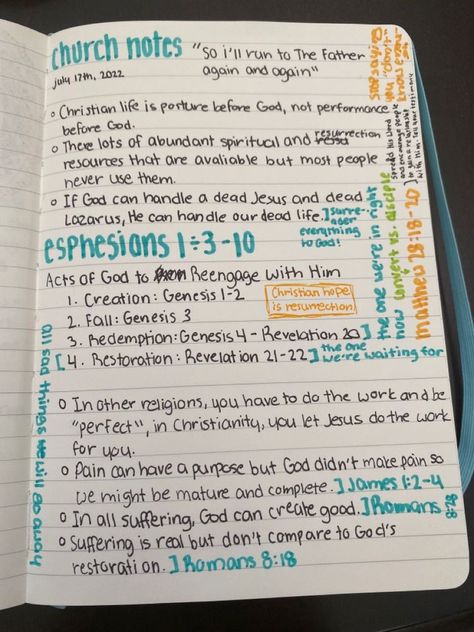 church notes
July 17th, 2022
"So i'll run to The Father
again and again"
Christian life is posture before God, not performance
before God.
There lots of abundant spiritual and resurrection
resources that are avaliable but most people
never use them.
If God can handle a dead Jesus and dead
Lazarus, He can handle our dead life. ] surre-
nder
everything
to God!
esphesians 1:3-10
Acts of God to Reengage With Him
1. Creation: Genesis 1-2
2. Fall: Genesis 3
3. Redemption: Genesis 4 - Revelation 20 ] the one we're in right now
[ 4. Restoration: Revelation 21-22 ] the one
we're waiting for
Christian hope
is resurrection
In other religions, you have to do the work and be
"perfect", in Christianity, you let Jesus do the work
for you.
Pain can have a purpose but God didn't make pain so
we might be mature and complete. ] James 1:2-4
In all suffering, God can create good. ] Romans 8:28
Suffering is real but don't compare to God's
restoration. ] Romans 8:18
all sad things will go away
convert vs. disciple
spreads His word
and encourage people
to gain a relationship
with Him
Matthew 28:18-20
stop saying